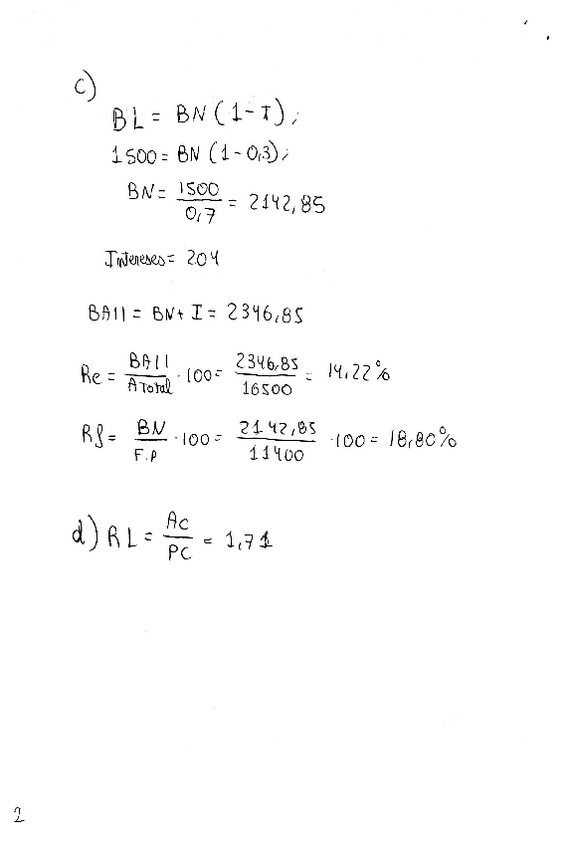 c)
BL = BN (1 - T);
1500 = BN (1 - 0,3);
BN = 1500/0,7 = 2142,85
Intereses = 204
BAII = BN + I = 2346,85
Re = BAII/A Total · 100 = 2346,85/16500 = 14,22%
Rf = BN/F.P · 100 = 2142,85/11400 · 100 = 18,80%
d) RL = Ac/PC = 1,71
2